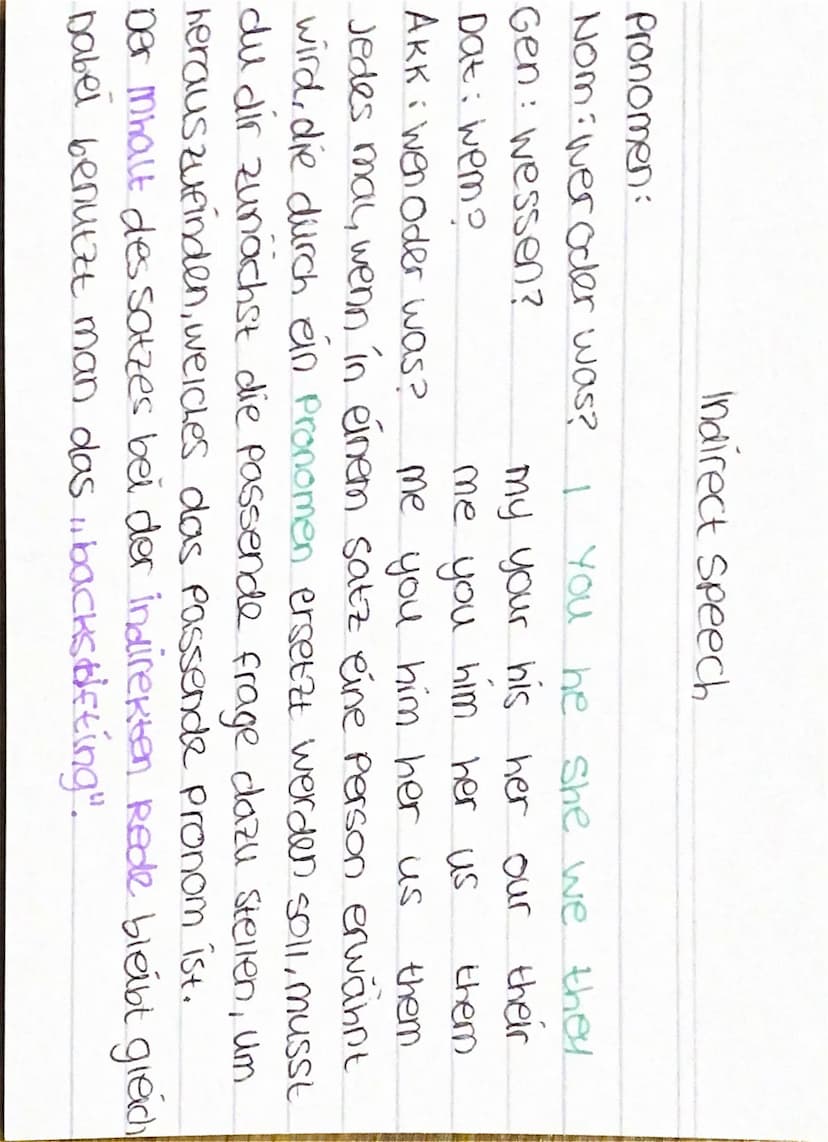 Indirect Speech
Pronomen:
Nom: wer oder was? I You he she we they
Gen: wessen? my your his her our their
Dat: wem? me you him her us them
Akk: wen oder was? me you him her us them
Jedes mal, wenn in einem Satz eine Person erwähnt
wird, die durch ein Pronomen ersetzt werden soll, musst
du dir zunächst die passende Frage dazu stellen, um
herauszufinden, welches das passende Pronom ist.
Der Inhalt des Satzes bei der indirekten Rede bleibt gleich
Dabei benutzt man das „backshifting".